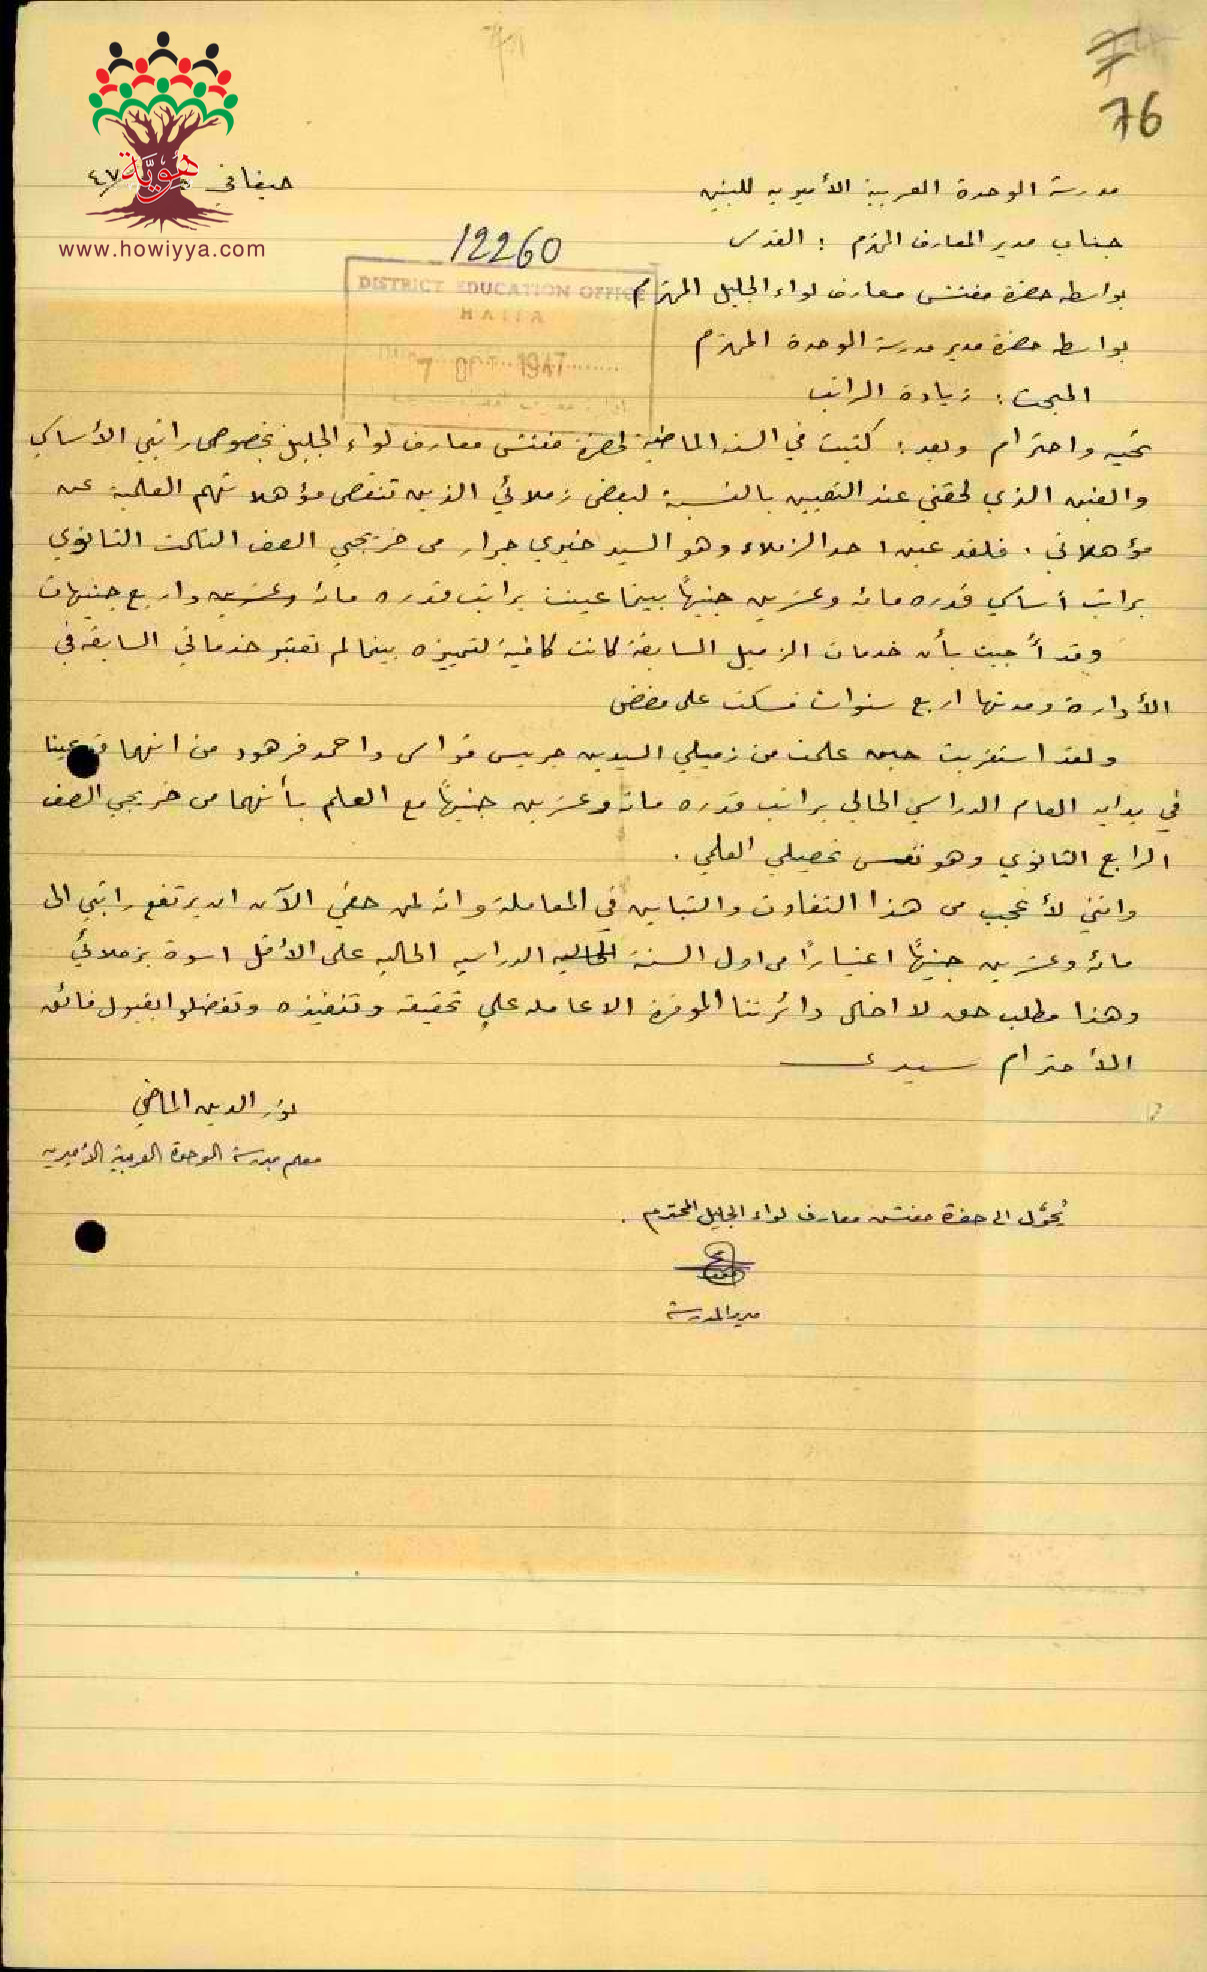 76
حيفا في ٤٧
هوية
www.howiyya.com
مدرسة الوحدة العربية الأميرية للبنين
جناب مدير المعارف المحترم : القدس
12260
بواسطه حضرة مفتش معارف لواء الجليل المحترم
DISTRICT EDUCATION OFFICE
HAIFA
7 OCT 1947
بواسطه حضرة مدير مدرسة الوحدة المحترم
المبحث : زيادة الراتب
تحيه واحترام وبعد : كتبت في السنه الماضية لحضرة مفتش معارف لواء الجليل بخصوص راتبي الأساسي
والغبن الذي لحقني عند التعيين بالنسبة لبعض زملائي الذين تنقص مؤهلاتهم العلمية عن
مؤهلاتي . فلقد عين احد الزملاء وهو السيد خيري جرار من خريجي الصف الثالث الثانوي
براتب أساسي قدره مائه وعشرين جنيهاً بينما عينت براتب قدره مائه وعشرين واربع جنيهات
وقد أُجبت بأن خدمات الزميل السابقة كانت كافية لتمييزه بينما لم تعتبر خدماتي السابقه في
الأدارة ومدتها اربع سنوات فسكت على مضض
ولقد استغربت حين علمت من زميلي السيدين جريس قواس واحمد فرهود من انهما قد عينا
في بداية العام الدراسي الحالي براتب قدره مائة وعشرين جنيهاً مع العلم بأنهما من خريجي الصف
الرابع الثانوي وهو نفس تحصيلي العلمي .
وانني لأعجب من هذا التفاوت والتباين في المعاملة وانه لمن حقي الآن ان يرتفع راتبي الى
مائه وعشرين جنيهاً اعتباراً من اول السنة الحاليه الدراسيه الحاليه على الأقل اسوة بزملائي
وهذا مطلب حق لا اخال دائرتنا الموقرة الا عامله على تحقيقه وتنفيذه وتفضلوا بقبول فائق
الأحترام سيدي
نور الدين الماضي
معلم مدرسة الوحدة العربية الأميريه
يُحوَّل الى حضرة مفتش معارف لواء الجليل المحترم .
مدير المدرسة